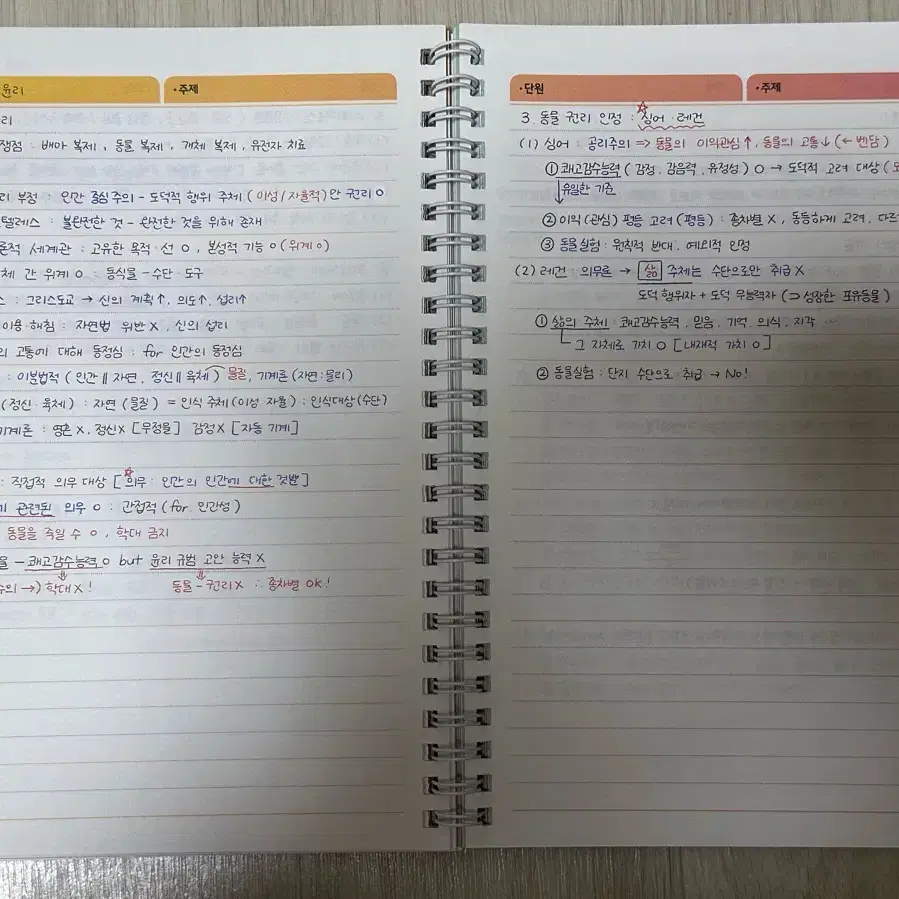 윤리
·주제
리
쟁점 : 배아 복제, 동물 복제, 개체 복제, 유전자 치료
리 부정 : 인간 중심주의 - 도덕적 행위 주체 (이성/자율적)만 권리 O
텔레스 : 불완전한 것 - 완전한 것을 위해 존재
론적 세계관 : 고유한 목적·선 O, 본성적 기능 O (위계 O)
체 간 위계 O : 동식물 - 수단·도구
스 : 그리스도교 → 신의 계획↑, 의도↑, 섭리↑
이용·해침 : 자연법 위반 X, 신의 섭리
의 고통에 대해 동정심 : for 인간의 동정심
: 이분법적 (인간 ∥ 자연, 정신 ∥ 육체) 물질, 기계론 (자연:물리)
(정신·육체) : 자연 (물질) = 인식 주체 (이성·자율) : 인식대상 (수단)
기계론 : 영혼 X, 정신 X [무정물] 감정 X [자동 기계]
: 직접적 의무 대상 [☆의무 : 인간의 인간에 대한 것뿐]
관련된 의무 O : 간접적 (for 인간성)
동물을 죽일 수 O, 학대 금지
물 - 쾌고감수능력 O but 윤리 규범 고안 능력 X
→) 학대 X! 동물 - 권리 X ∴ 종차별 OK!
·단원
·주제
3. 동물 권리 인정 : ☆싱어·레건
(1) 싱어 : 공리주의 ⇒ 동물의 이익관심↑, 동물의 고통↓ (← 벤담)
① 쾌고감수능력 (감정, 감응력, 유정성) O → 도덕적 고려 대상 (도
↓유일한 기준
② 이익 (관심) 평등 고려 (평등) : 종차별 X, 동등하게 고려, 다르
③ 동물실험 : 원칙적 반대, 예외적 인정
(2) 레건 : 의무론 → 삶 주체는 수단으로만 취급 X
도덕 행위자 + 도덕 무능력자 (⊃ 성장한 포유동물)
① 삶의 주체 : 쾌고감수능력, 믿음, 기억, 의식, 지각 …
그 자체로 가치 O [내재적 가치 O]
② 동물실험 : 단지 수단으로 취급 → No!